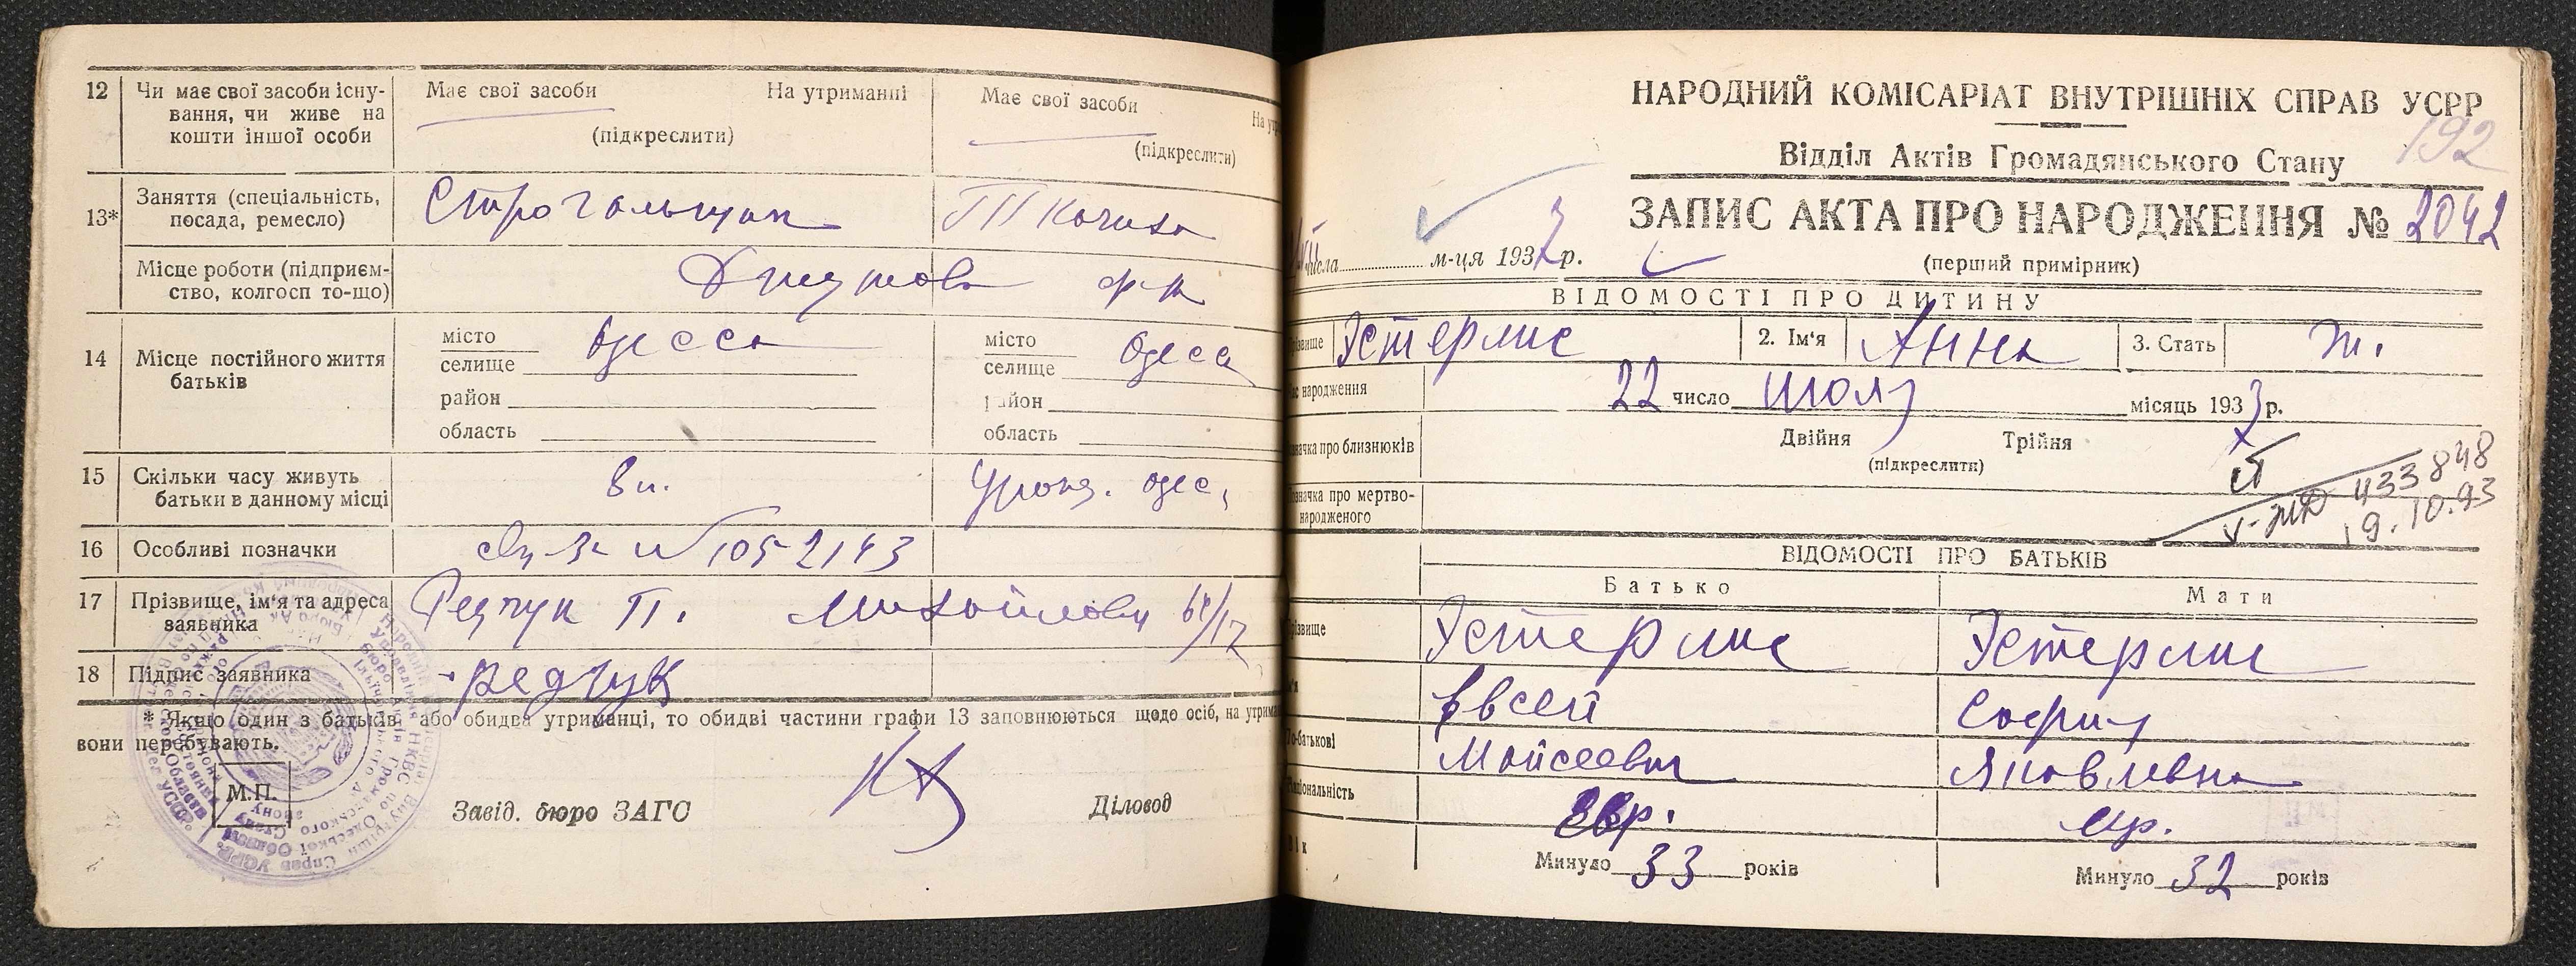 12 Чи має свої засоби існу-
вання, чи живе на
кошти іншої особи
Має свої засоби На утриманні
(підкреслити)
Має свої засоби
(підкреслити)
13* Заняття (спеціальність,
посада, ремесло)
Строгальщик
Ткачиха
Місце роботи (підприєм-
ство, колгосп то-що)
Джутова ф-к
14 Місце постійного життя
батьків
місто Одесса
селище
район
область
місто Одесс
селище
район
область
15 Скільки часу живуть
батьки в данному місці
8 л.
Урожд. Одес.
16 Особливі позначки
№ 1052143
17 Прізвище, ім'я та адреса
заявника
Редчук П.
18 Підпис заявника
Редчук
* Якщо один з батьків або обидва утриманці, то обидві частини графи 13 заповнюються щодо осіб, на
вони перебувають.
М.П.
Завід. бюро ЗАГС
Діловод
НАРОДНИЙ КОМІСАРІАТ ВНУТРІШНІХ СПРАВ УСРР
192
Відділ Актів Громадянського Стану
ЗАПИС АКТА ПРО НАРОДЖЕННЯ № 2042
числа м-ця 1937 р.
(перший примірник)
ВІДОМОСТІ ПРО ДИТИНУ
Эстерлис
2. Ім'я Анна
3. Стать ж.
народження 22 число июля місяць 1937 р.
про близнюків
Двійня Трійня
(підкреслити)
про мертво-
народженого
433848
19.10.93
ВІДОМОСТІ ПРО БАТЬКІВ
Батько Мати
Эстерлис Эстерлис
Евсей София
Моисеевич Яковлевна
Евр.
Минуло 33 років
Минуло 32 років